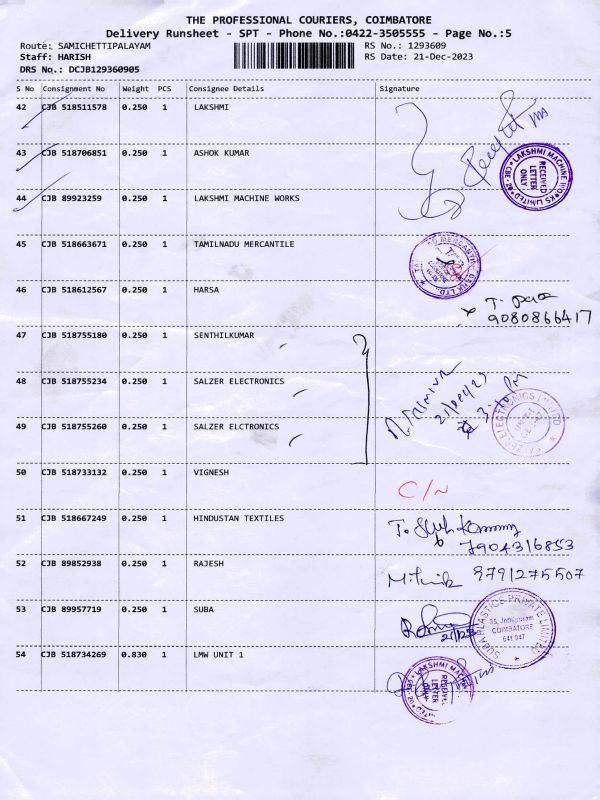 THE PROFESSIONAL COURIERS, COIMBATORE
Delivery Runsheet - SPT - Phone No.:0422-3505555 - Page No.:5
Route: SAMICHETTIPALAYAM RS No.: 1293609
Staff: HARISH RS Date: 21-Dec-2023
DRS No.: DCJB129360905
S No Consignment No Weight PCS Consignee Details Signature
42 CJB 518511578 0.250 1 LAKSHMI
43 CJB 518706851 0.250 1 ASHOK KUMAR
LAKSHMI MACHINE WORKS LIMITED CBE
RECEIVED LETTER ONLY
44 CJB 89923259 0.250 1 LAKSHMI MACHINE WORKS
45 CJB 518663671 0.250 1 TAMILNADU MERCANTILE
46 CJB 518612567 0.250 1 HARSA
9080866417
47 CJB 518755180 0.250 1 SENTHILKUMAR
48 CJB 518755234 0.250 1 SALZER ELECTRONICS
49 CJB 518755260 0.250 1 SALZER ELCTRONICS
SALZER ELECTRONICS LIMITED
50 CJB 518733132 0.250 1 VIGNESH
C/N
51 CJB 518667249 0.250 1 HINDUSTAN TEXTILES
7904316853
52 CJB 89852938 0.250 1 RAJESH
9791275507
53 CJB 89957719 0.250 1 SUBA
SUBA PLASTICS PRIVATE LIMITED
COIMBATORE
641 047
54 CJB 518734269 0.830 1 LMW UNIT 1
LAKSHMI MACHINE
RECEIVED LETTER ONLY